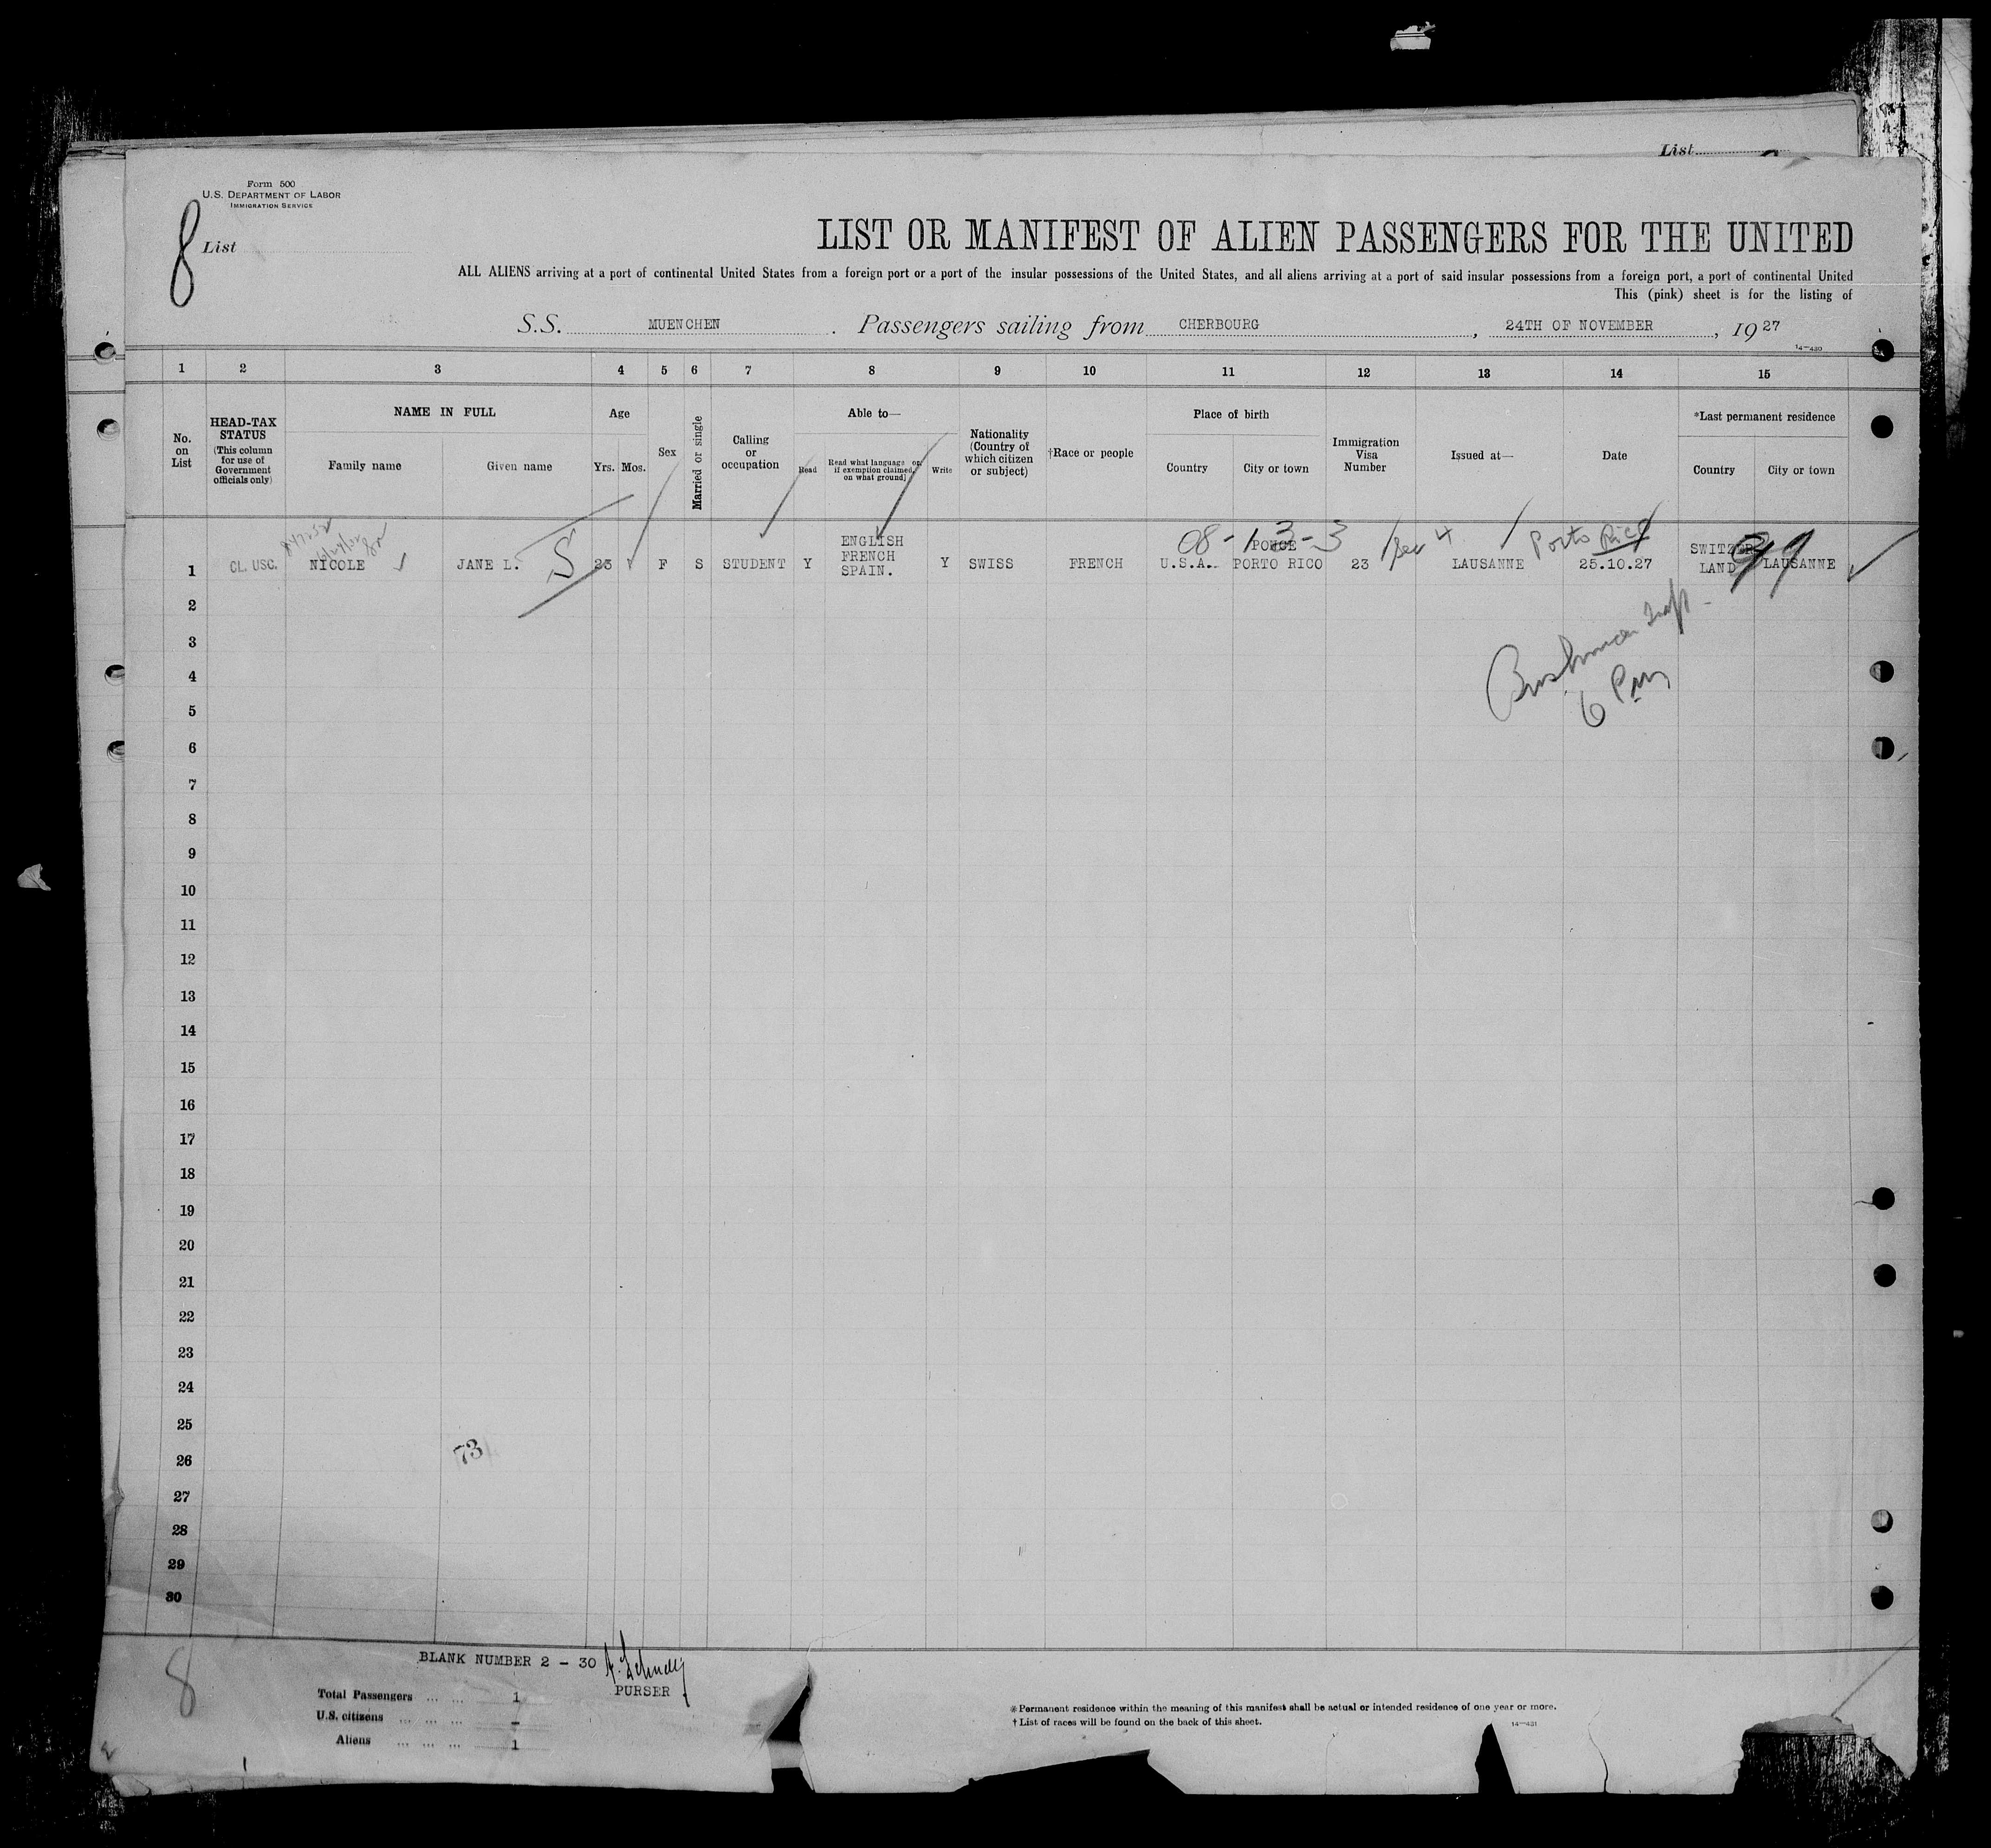 List
Form 500
U.S. DEPARTMENT OF LABOR
IMMIGRATION SERVICE
8
List
LIST OR MANIFEST OF ALIEN PASSENGERS FOR THE UNITED
ALL ALIENS arriving at a port of continental United States from a foreign port or a port of the insular possessions of the United States, and all aliens arriving at a port of said insular possessions from a foreign port, a port of continental United
This (pink) sheet is for the listing of
S.S. MUENCHEN . Passengers sailing from CHERBOURG , 24TH OF NOVEMBER , 19 27
14—430
1 2 3 4 5 6 7 8 9 10 11 12 13 14 15
No. on List
HEAD-TAX STATUS (This column for use of Government officials only)
NAME IN FULL
Family name Given name
Age
Yrs. Mos.
Sex
Married or single
Calling or occupation
Able to—
Read Read what language [or, if exemption claimed, on what ground] Write
Nationality (Country of which citizen or subject)
†Race or people
Place of birth
Country City or town
Immigration Visa Number
Issued at—
Date
*Last permanent residence
Country City or town
08-13-3 Porto Rico 99
1 CL. USC. NICOLE JANE L. S 23 F S STUDENT Y ENGLISH FRENCH SPAIN. Y SWISS FRENCH U.S.A. PONCE PORTO RICO 23 Sec 4 LAUSANNE 25.10.27 SWITZERLAND LAUSANNE
2
3
4
6 Pm
5
6
7
8
9
10
11
12
13
14
15
16
17
18
19
20
21
22
23
24
25
26
73
27
28
29
30
8
BLANK NUMBER 2 - 30
PURSER
Total Passengers ... ... 1
U.S. citizens ... ... ... -
Aliens ... ... ... 1
* Permanent residence within the meaning of this manifest shall be actual or intended residence of one year or more.
† List of races will be found on the back of this sheet.
14—431